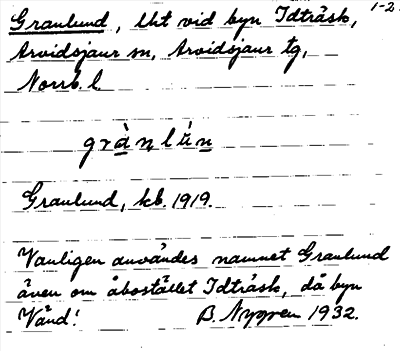 Granlund, lht vid byn Idträsk, 1-2.
Arvidsjaur sn, Arvidsjaur tg,
Norrb. l.
grànlún
Granlund, kb. 1919.
Vanligen användes namnet Granlund
även om åbostället Idträsk, då byn
Vänd! B. Nygren 1932.